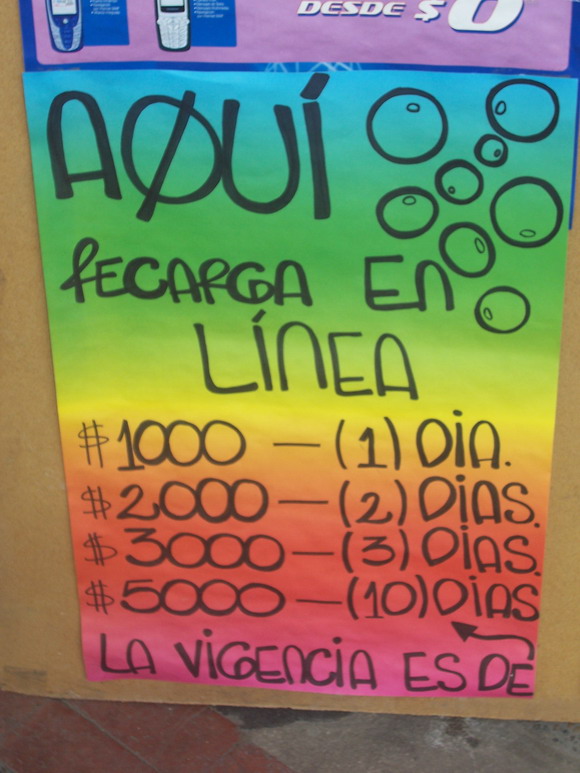 DESDE $0
AQUÍ
RECARGA EN
LÍNEA
$1000 — (1) DíA.
$2000 — (2) DíAS.
$3000 — (3) DíAS.
$5000 — (10) DíAS
LA VIGENCIA ES DE